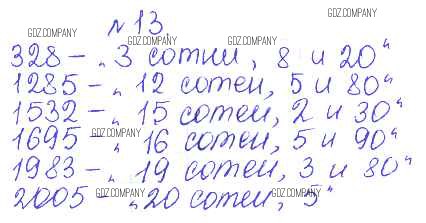 № 13.
328 – „3 сотни, 8 и 20“
1285 – „12 сотен, 5 и 80“
1532 – „15 сотен, 2 и 30“
1695 – „16 сотен, 5 и 90“
1983 – „19 сотен, 3 и 80“
2005 – „20 сотен, 5“
GDZ.COMPANY
GDZ.COMPANY
GDZ.COMPANY
GDZ.COMPANY
GDZ.COMPANY
GDZ.COMPANY
GDZ.COMPANY